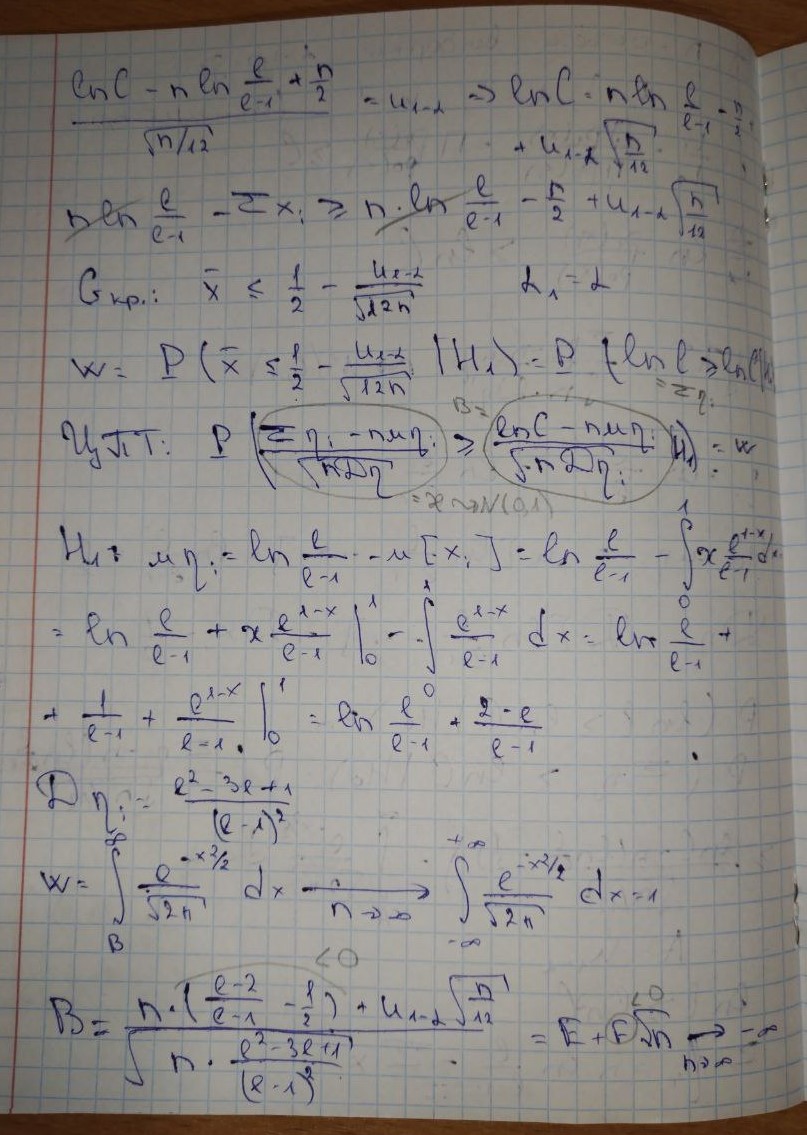 (ln C - n ln e/(e-1) + n/2) / √(n/12) = u₁₋α ⇒ ln C = n ln e/(e-1) - n/2 +
+ u₁₋α √(n/12)
n ln e/(e-1) - Σxᵢ ≥ n·ln e/(e-1) - n/2 + u₁₋α √(n/12)
Gкр.: x̄ ≤ 1/2 - u₁₋α/√(12n)    α₁ = α
W = P(x̄ ≤ 1/2 - u₁₋α/√(12n) | H₁) = P(ln l ≥ ln C | H₁)
= Σηᵢ
B =
ЦПТ: P((Σηᵢ - nμηᵢ)/√(nDη) ≥ (ln C - nμηᵢ)/√(nDηᵢ) | H₁) = W
= x ~ N(0,1)
H₁: μηᵢ = ln e/(e-1) - μ[xᵢ] = ln e/(e-1) - ∫₀¹ x e^(1-x)/(e-1) dx
= ln e/(e-1) + x e^(1-x)/(e-1) |₀¹ - ∫₀¹ e^(1-x)/(e-1) dx = ln e/(e-1) +
+ 1/(e-1) + e^(1-x)/(e-1) |₀¹ = ln e/(e-1) + (2-e)/(e-1)
Dηᵢ = (e² - 3e + 1)/(e-1)²
W = ∫_B^∞ e^(-x²/2)/√(2π) dx ⟶ n→∞ ∫_(-∞)^(+∞) e^(-x²/2)/√(2π) dx = 1
<0 <0
B = (n·((e-2)/(e-1) - 1/2) + u₁₋α √(n/12)) / √(n·(e²-3e+1)/(e-1)²) = E + F√n ⟶ n→∞ -∞